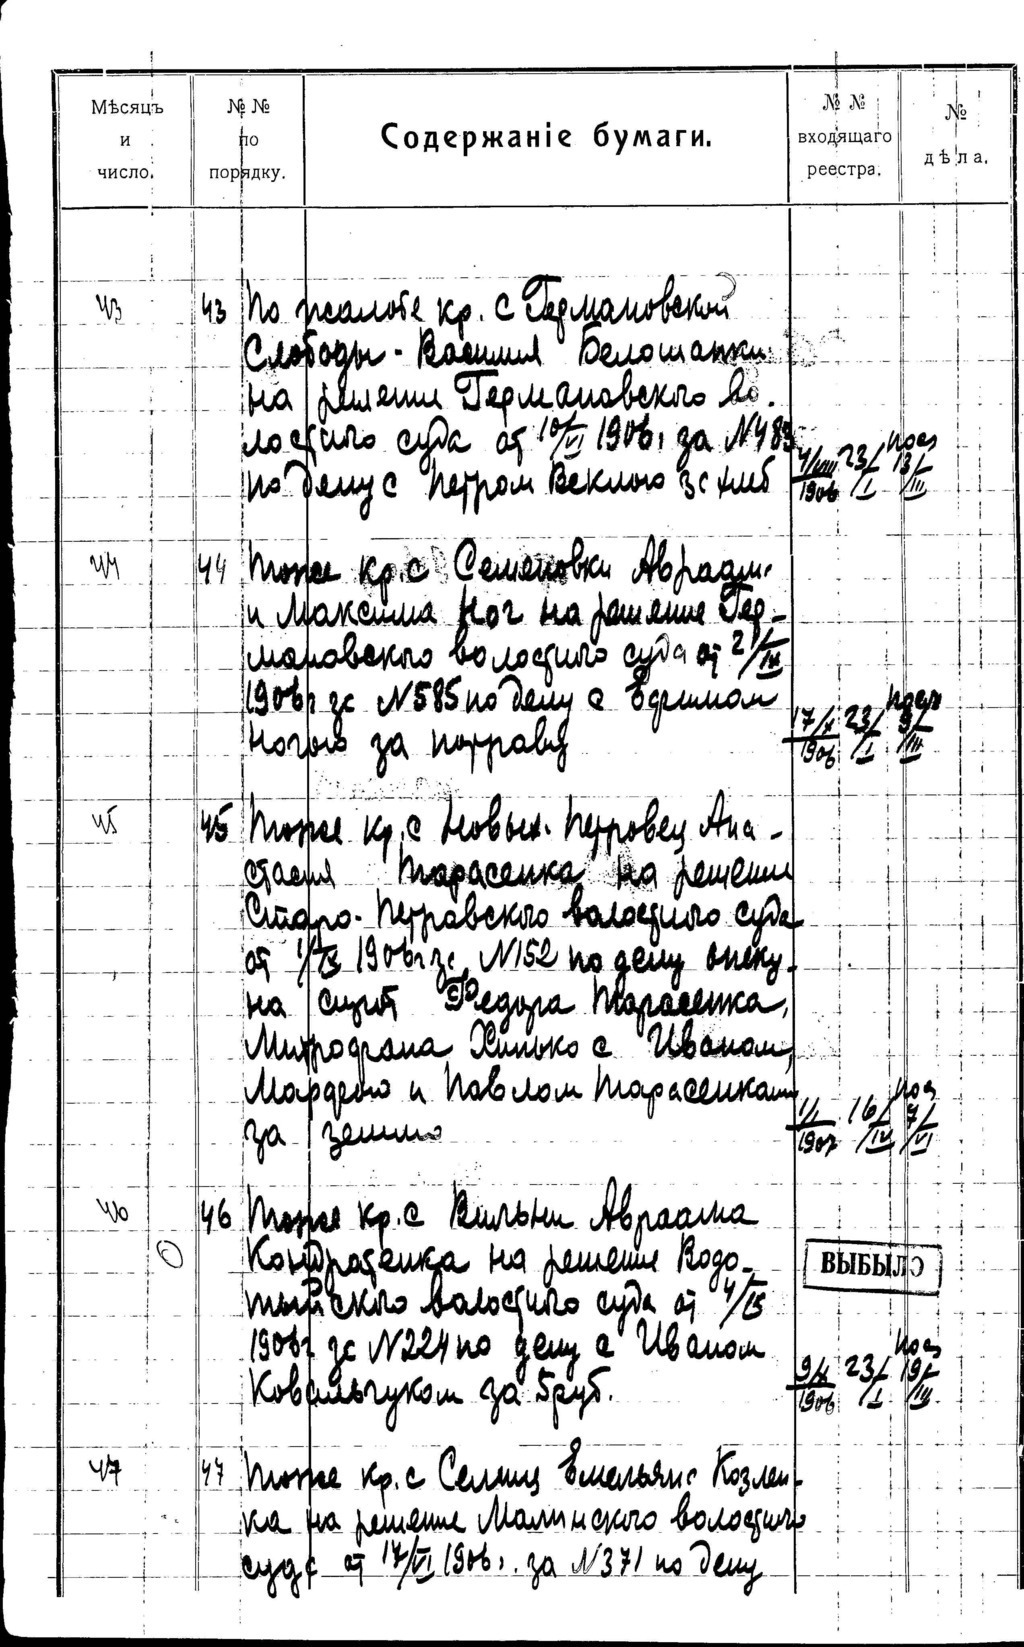 Мѣсяцъ и число.
№ № по порядку.
Содержаніе бумаги.
№ № входящаго реестра.
№ дѣла.
43 43 По жалобе кр. с Германовской
Слободы - Василия Белошапки
на решение Германовского во-
лостного суда от 10/VI 1906 г за N 489
по делу с Петром Веклою за хлеб
4/VIII 1906 23/I 13/III
44 44 Тоже кр. с Семеновки Авраама
и Максима Ног на решение Гер-
мановского волостного суда от 2/IX
1906 г за N 585 по делу с Ефимом
Ногою за потраву
17/X 1906 23/I 9/III
45 45 Тоже кр. с Новых-Петровец Ана-
стасия Тарасенка на решение
Старо-Петровского волостного суда
от 1906 г за N 152 по делу опеку-
на сирот Федора Тарасенка,
Митрофана Хинько с Иваном,
и Павлом Тарасенками
за землю
1/I 1907 16/IV 7/VI
46 46 Тоже кр. с Вильни Авраама
Кондратенка на решение Водо-
тыйского волостного суда от 4/IX
1906 г за N 224 по делу с Иваном
Ковальчуком за 5 руб.
ВЫБЫЛО
9/X 1906 23/I 19/III
47 47 Тоже кр. с Селищ Емельяна Козлен-
ка на решение Малинского волостного
суда от 17/VI 1906 г. за N 371 по делу